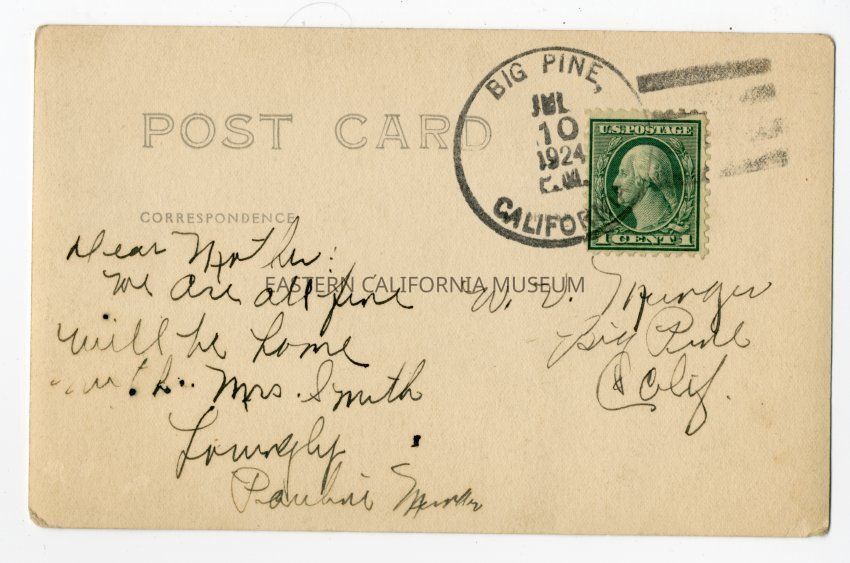 BIG PINE,
JUL
10
1924
P.M.
CALIFOR
U.S. POSTAGE
1 CENT 1
POST CARD
CORRESPONDENCE
Dear Mother:
We are all fine
will be home
with Mrs. Smith
Lovingly
Pauline Munger
W. V. Munger
Big Pine
Calif.
EASTERN CALIFORNIA MUSEUM